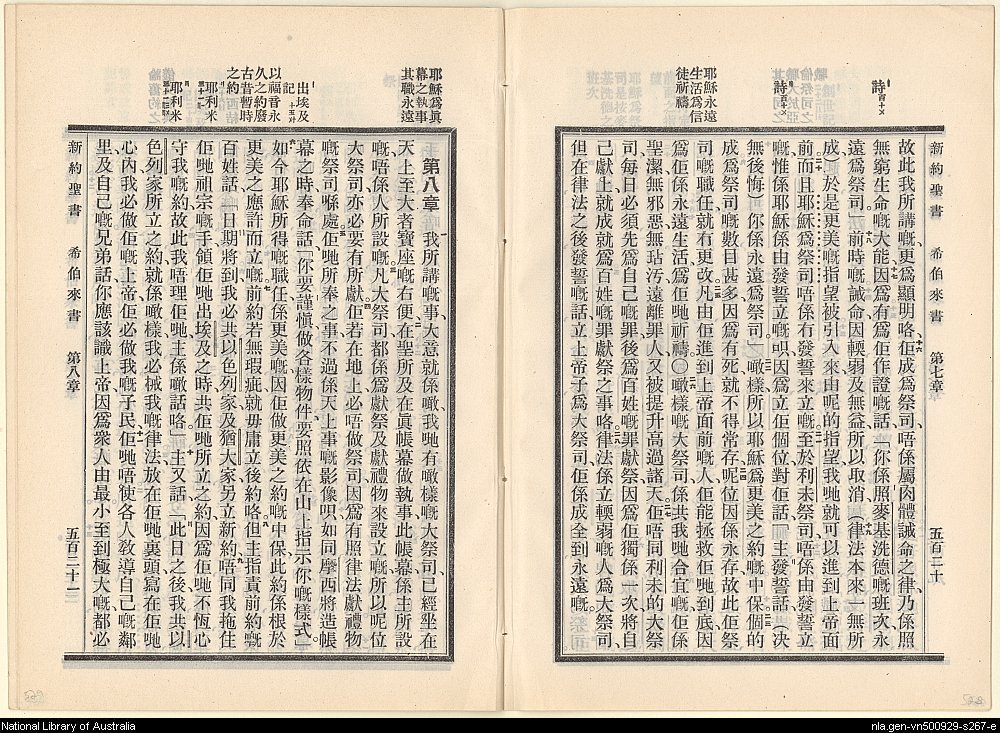 新約聖書 希伯來書 第七章 五百二十
故此我所講嘅、更爲顯明咯、佢成爲祭司、唔係屬肉體誡命之律、乃係照
無窮生命嘅大能、因爲有爲佢作證嘅話、「你係照麥基洗德嘅班次、永
遠爲祭司」前時嘅誡命、因輭弱及無益、所以取消、(律法本來一無所
成)於是更美嘅指望被引入來、由呢的指望、我哋就可以進到上帝面
前、而且耶穌爲祭司、唔係冇發誓來立嘅、至於利未祭司、唔係由發誓立
嘅、惟係耶穌係由發誓立嘅、呮因爲立佢個位對佢話、「主發誓話、(決
無後悔)你係永遠爲祭司」噉樣、所以耶穌爲更美之約嘅中保、個的
成爲祭司嘅、數目甚多、因爲有死、就不得常存、呢位因係永存、故此佢祭
司嘅職任、就冇更改、凡由佢進到上帝面前嘅人、佢能拯救佢哋到底、因
爲佢係永遠生活、爲佢哋祈禱、〇噉樣嘅大祭司、係共我哋合宜、佢係
聖潔、無邪惡、無玷汚、遠離罪人、又被提升高過諸天、佢唔同利未的大祭
司、每日必須先爲自己嘅罪、後爲百姓嘅罪獻祭、因爲佢獨係一次將自
己獻上、就成就爲百姓嘅罪獻祭之事咯、律法係立輭弱嘅人爲大祭司、
但在律法之後發誓嘅話、立上帝子爲大祭司、佢係成全到永遠嘅。
詩百十
詩百十
耶穌永遠
生活爲信
徒祈禱
新約聖書 希伯來書 第八章 五百二十一
第八章 我所講嘅事、大意就係噉、我哋有噉樣嘅大祭司、已經坐在
天上至大者寶座嘅右便、在聖所及在眞帳幕做執事、此帳幕係主所設
嘅、唔係人所設嘅、凡大祭司都係爲獻祭及獻禮物來設立嘅、所以呢位
大祭司亦必要有所獻、佢若在地上、必唔做祭司、因爲有照律法獻禮物
嘅祭司喺處、佢哋所奉之事、不過係天上事嘅影像、呮如同摩西將造帳
幕之時、奉命話、「你要謹愼做各樣物件、要照依在山上指示你嘅樣式」
如今耶穌所得嘅職任、係更美嘅、因佢做更美之約嘅中保、此約係根於
更美之應許而立嘅、前約若無瑕疵、就毋庸立後約咯、但主指責前約嘅
百姓話、「日期將到、我必共以色列家及猶大家另立新約、唔同我拖住
佢哋祖宗嘅手、領佢哋出埃及之時、共佢哋所立之約、因爲佢哋不恆心
守我嘅約、故此我唔理佢哋、主係噉話咯」主又話、「此日之後、我共以
色列家所立之約、就係噉樣、我必械我嘅律法、放在佢哋裏頭、寫在佢哋
心內、我必做佢哋嘅上帝、佢必做我嘅子民、佢哋唔使各人敎導自己嘅鄰
里及自己嘅兄弟、話你應該識上帝、因爲衆人由最小至到極大嘅、都必
耶穌爲眞
幕之執事
其職永遠
出埃及
記
以福音永
久之約廢
古昔暫時
之約
耶利米
耶利米
National Library of Australia
nla.gen-vn500929-s267-e